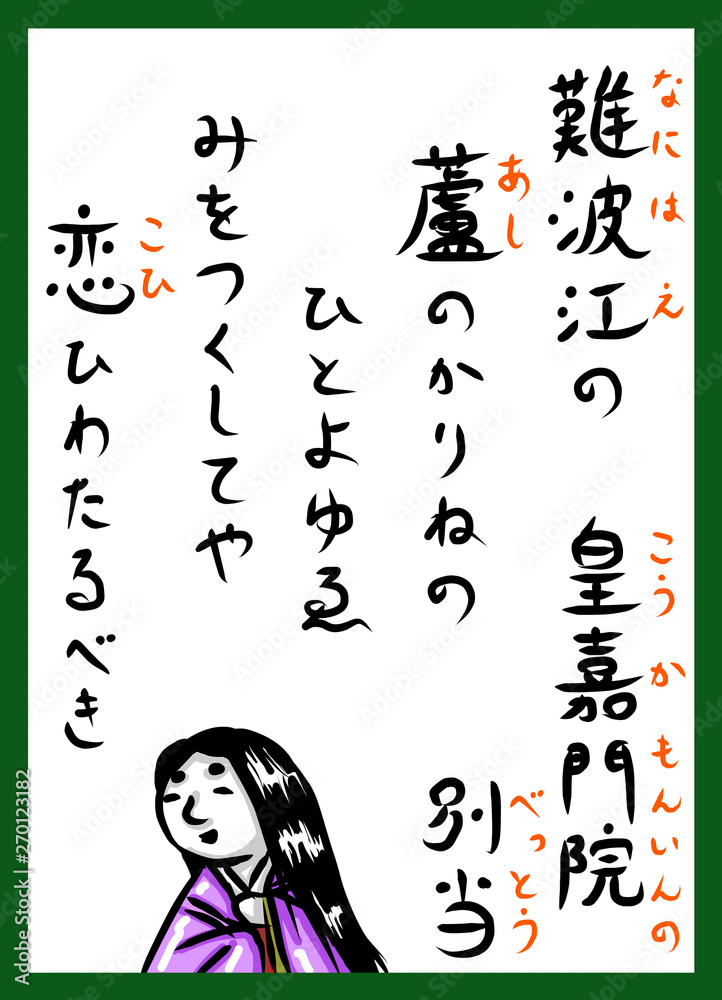 難波江の
なにはえ
皇嘉門院
こうかもんいんの
別当
べっとう
蘆のかりねの
あし
ひとよゆゑ
みをつくしてや
恋ひわたるべき
こひ
Adobe Stock | #270123182